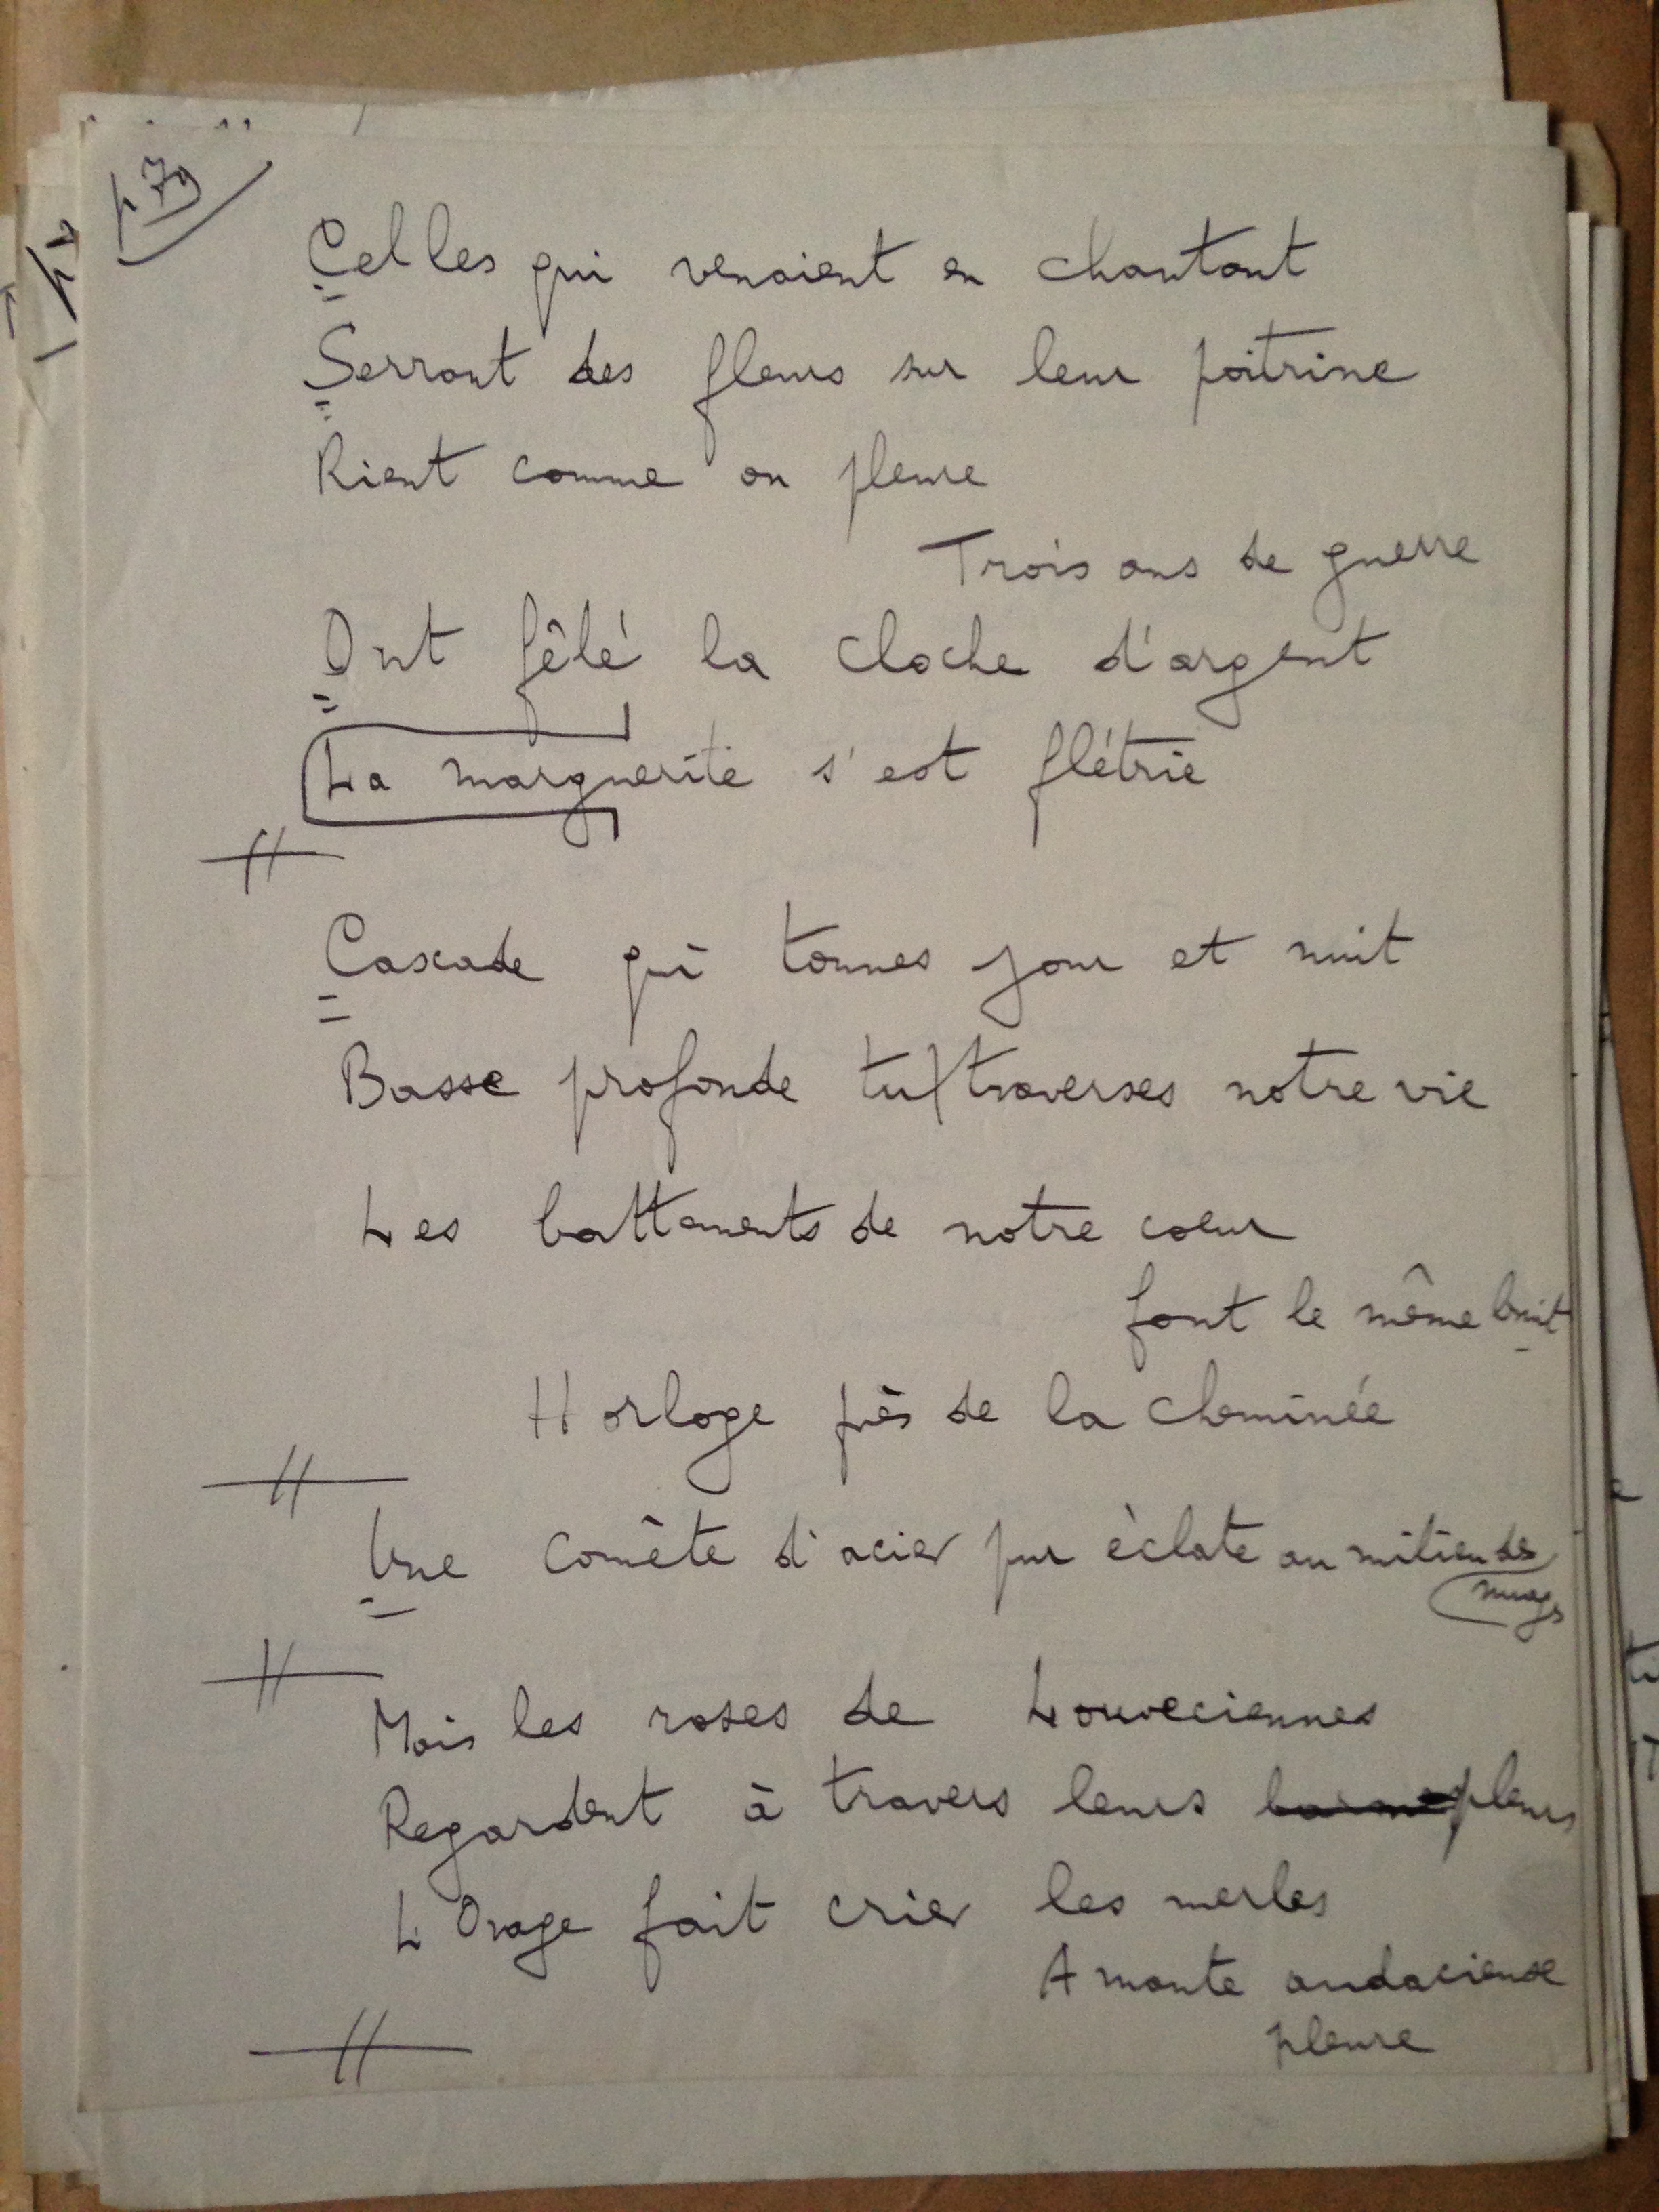 p 39
Celles qui venaient en chantant
Serrant des fleurs sur leur poitrine
Rient comme on pleure
Trois ans de guerre
Ont fêlé la cloche d'argent
La marguerite s'est flétrie
Cascade qui tonnes jour et nuit
Basse profonde tu traverses notre vie
Les battements de notre coeur
font le même bruit
Horloge près de la cheminée
Une comète d'acier pur éclate au milieu des
nuages
Mais les roses de Louveciennes
Regardent à travers leurs pleurs
L'Orage fait crier les merles
Amante audacieuse
pleure